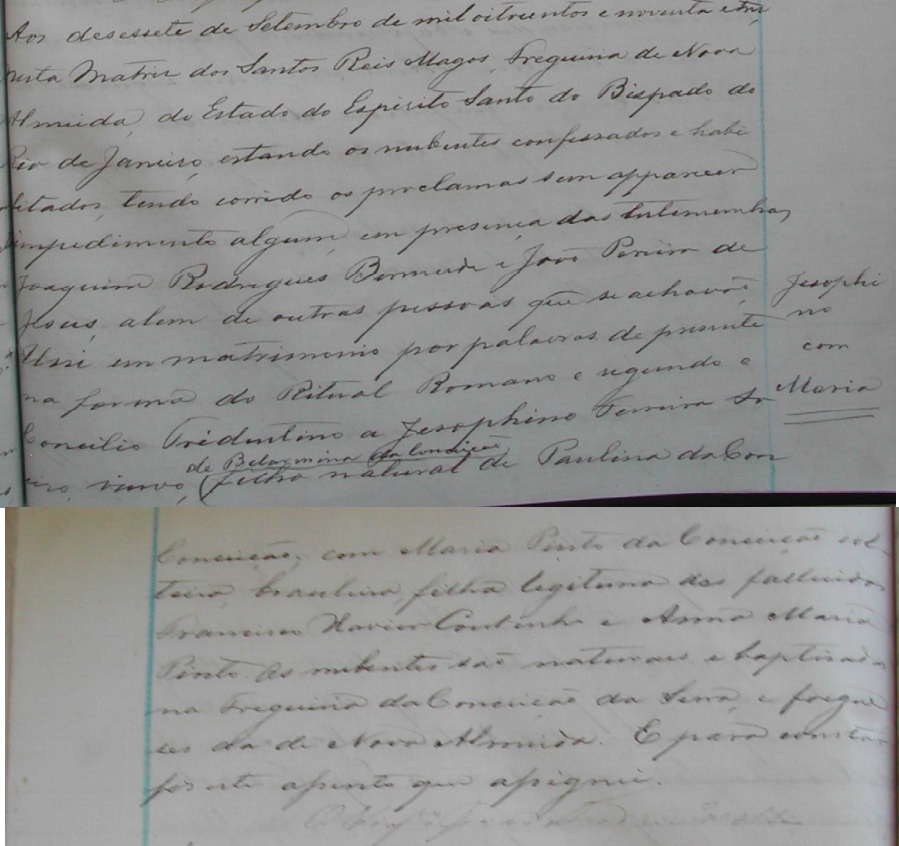 Aos desessete de Setembro de mil oitocentos e noventa e tres
nesta Matriz dos Santos Reis Magos, Freguizia de Nova
Almeida, do Estado do Espirito Santo do Bispado do
Rio de Janeiro, estando os nubentes confessados e habi
litados, tendo corrido os proclamas sem apparecer
impedimento algum, em presença das testemunhas,
Joaquim Rodrigues e João Pereira de
Jesus, alem de outras pessoas que se achavão,
Uni em matrimonio por palavras de presente
na forma do Ritual Romano e segundo o
Concilio Tridentino a Jesophino Ferreira
viuvo, de Belarmina da Conceição
(filho natural de Paulina da Con
Jesophi
no
com
Maria
Conceição, com Maria Pinto da Conceição sol-
teira, brasileira, filha legitima dos fallecidos
Francisco Xavier Coutinho e Anna Maria
Pinto. Os nubentes são naturaes e baptizados
na Freguizia da Conceição da Serra, e fregue
zes da de Nova Almeida. E para constar
fiz este assento que assignei.
O